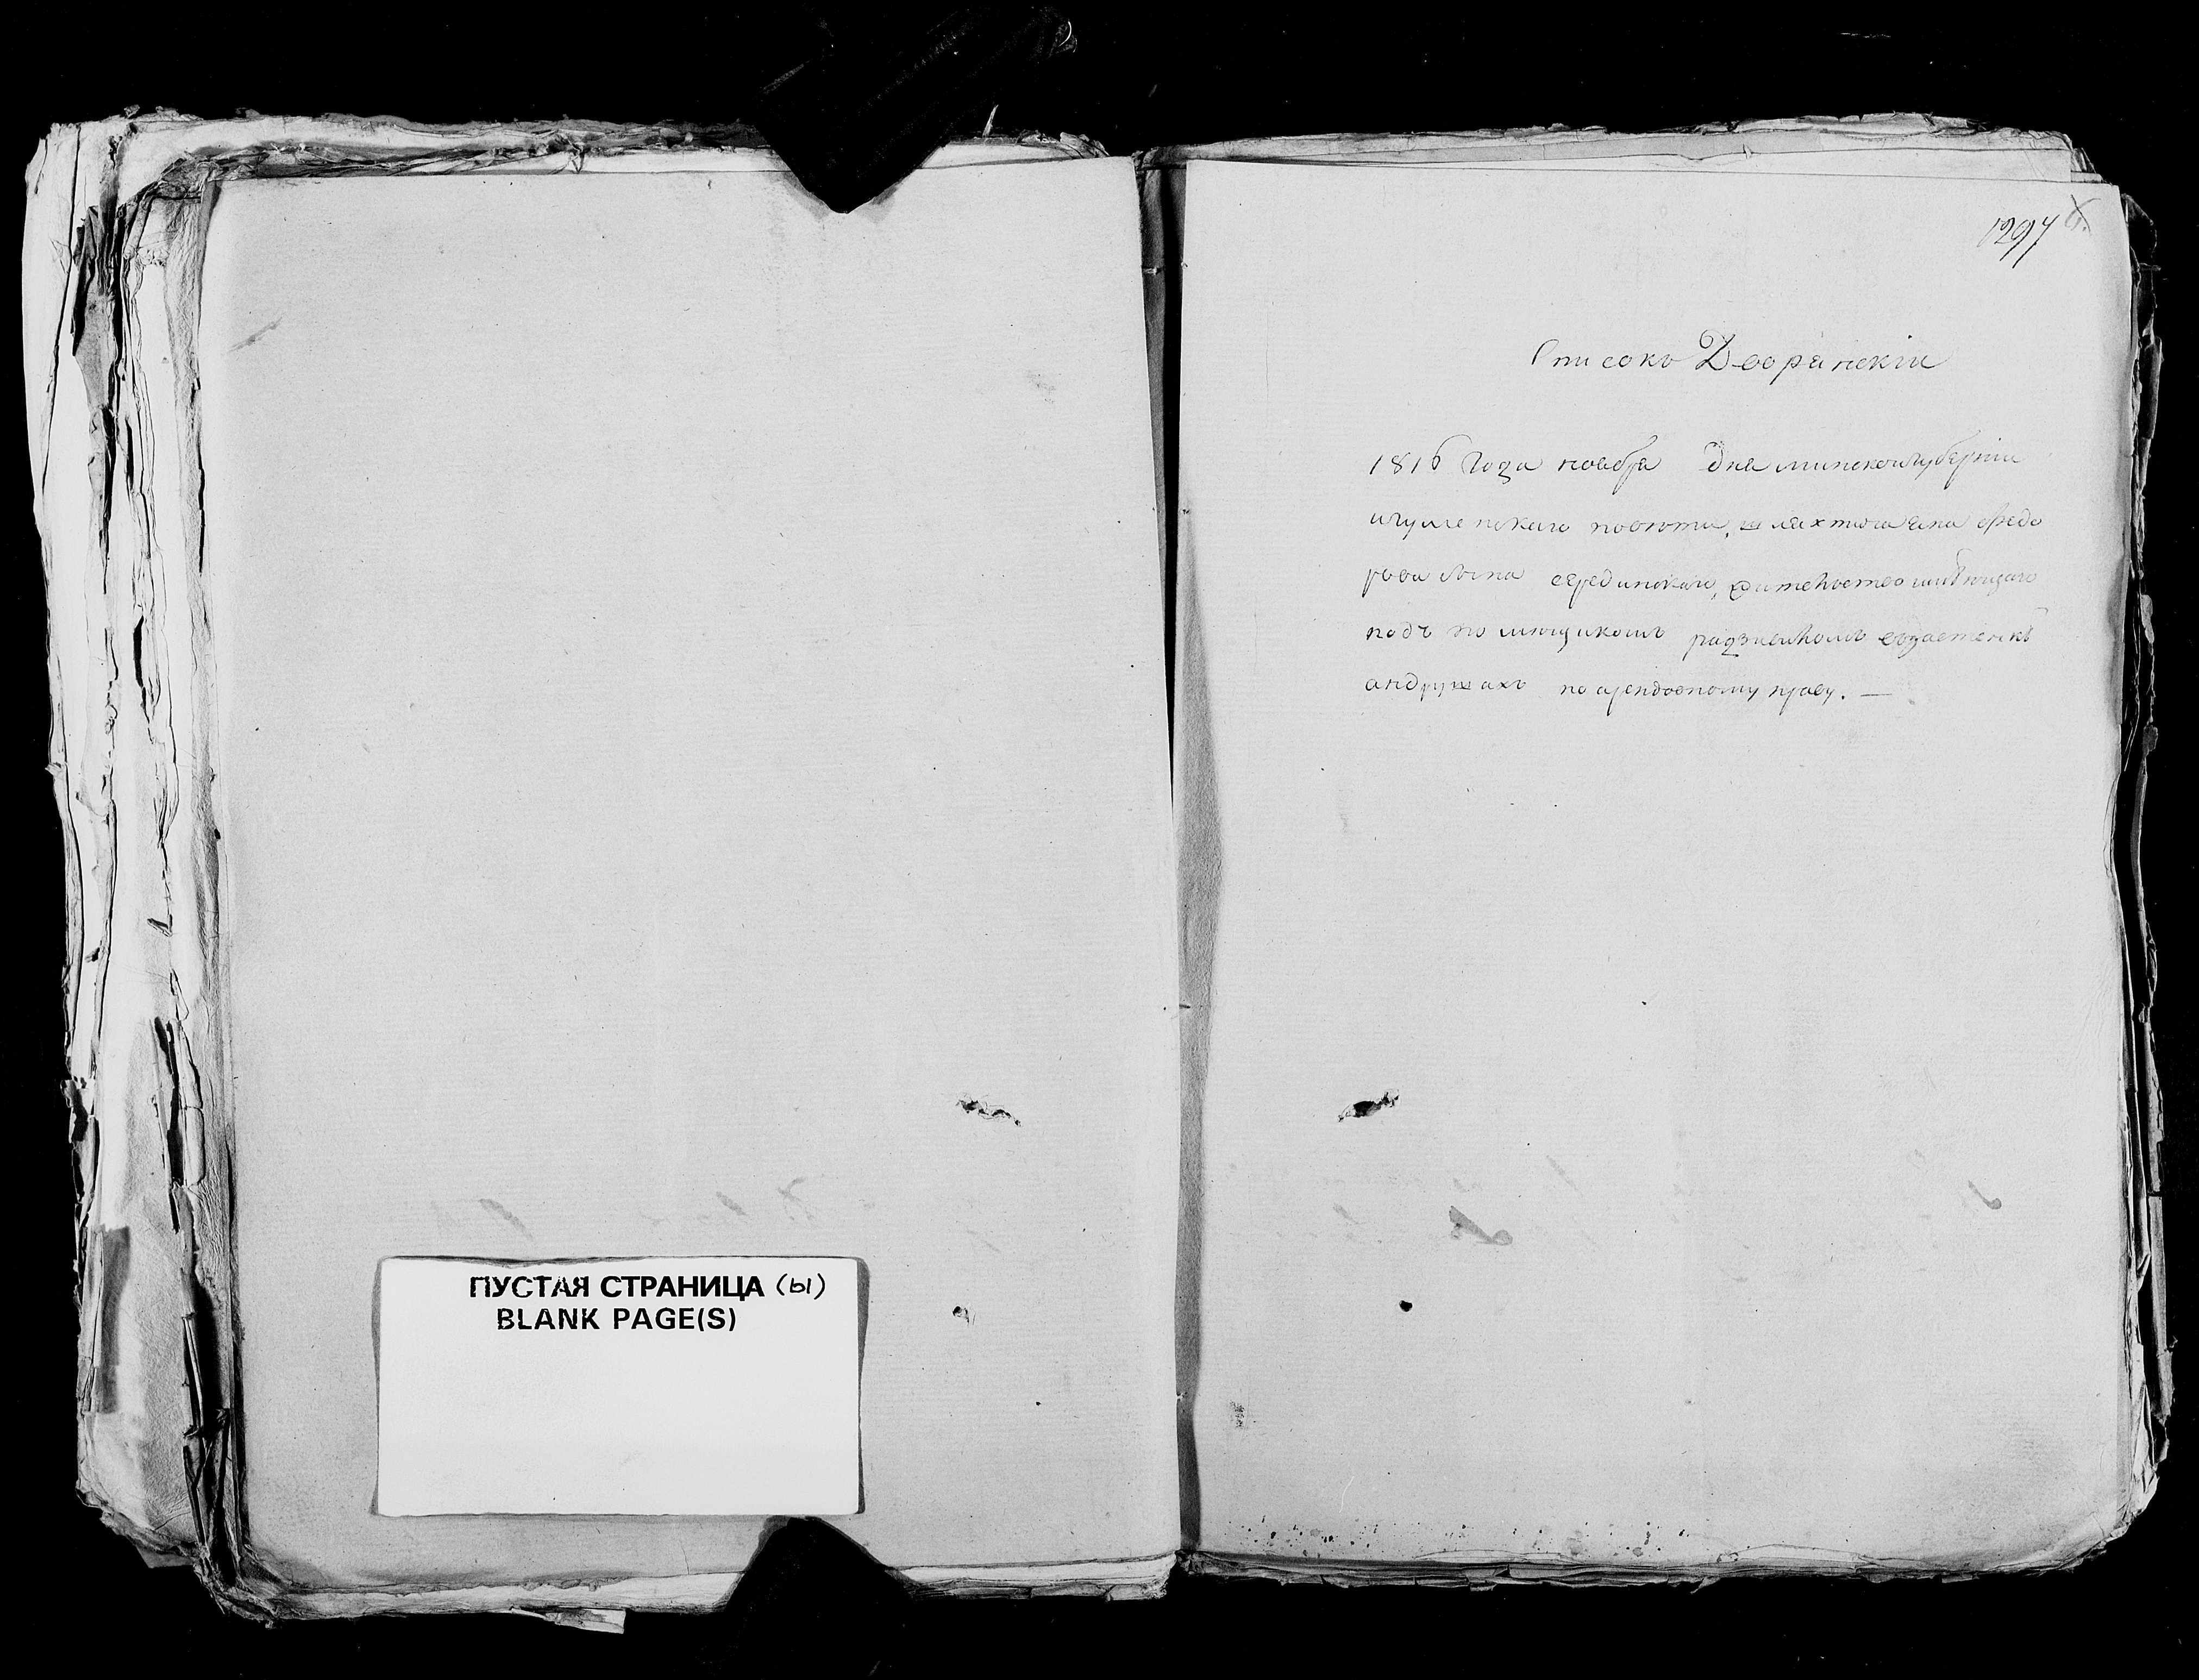 ПУСТАЯ СТРАНИЦА (ы)
BLANK PAGE(S)
1294
Списокъ Дворянскій
1816 Года ноабра Дна минской губерніи
игуменскаго повюта, шляхтича яна федо
рова сына серединскаго, жительство имѣющаго
подъ помющикомъ радзивиломъ
андрушахъ по арендовному праву. —